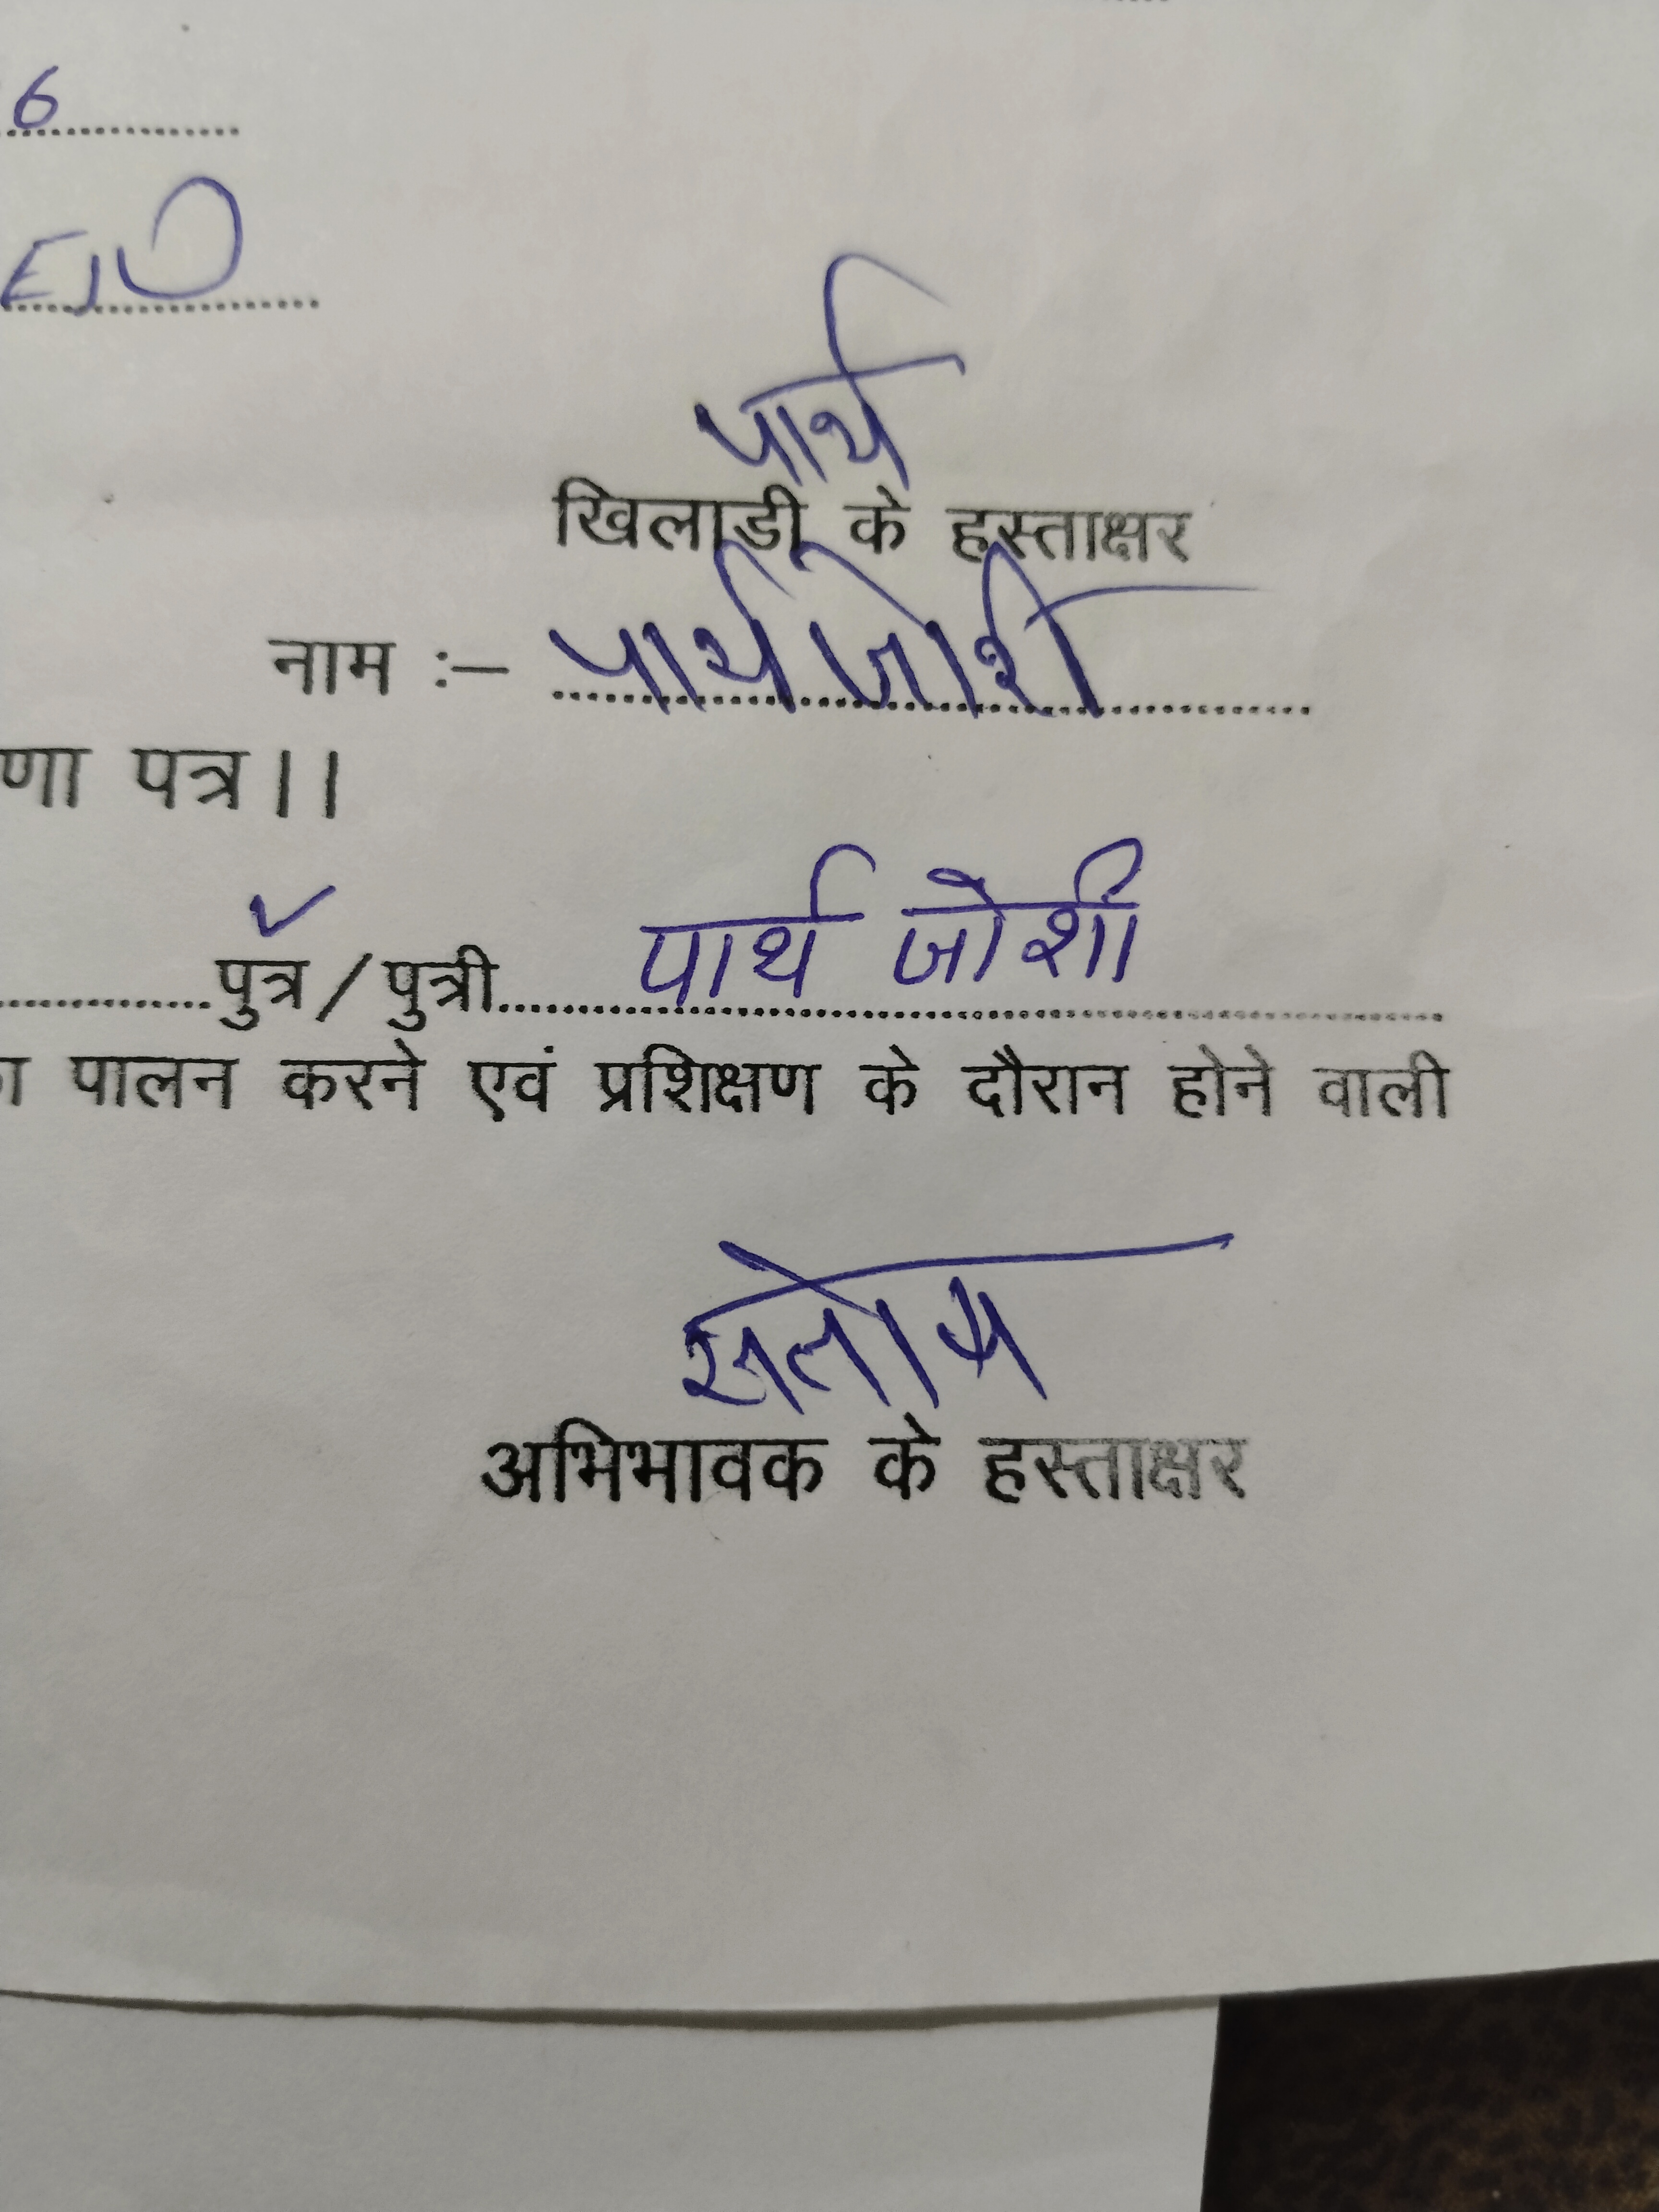 6
पार्थ
खिलाडी के हस्ताक्षर
नाम :– पार्थ जोशी
णा पत्र ।।
पुत्र / पुत्री पार्थ जोशी
पालन करने एवं प्रशिक्षण के दौरान होने वाली
संतोष
अभिभावक के हस्ताक्षर